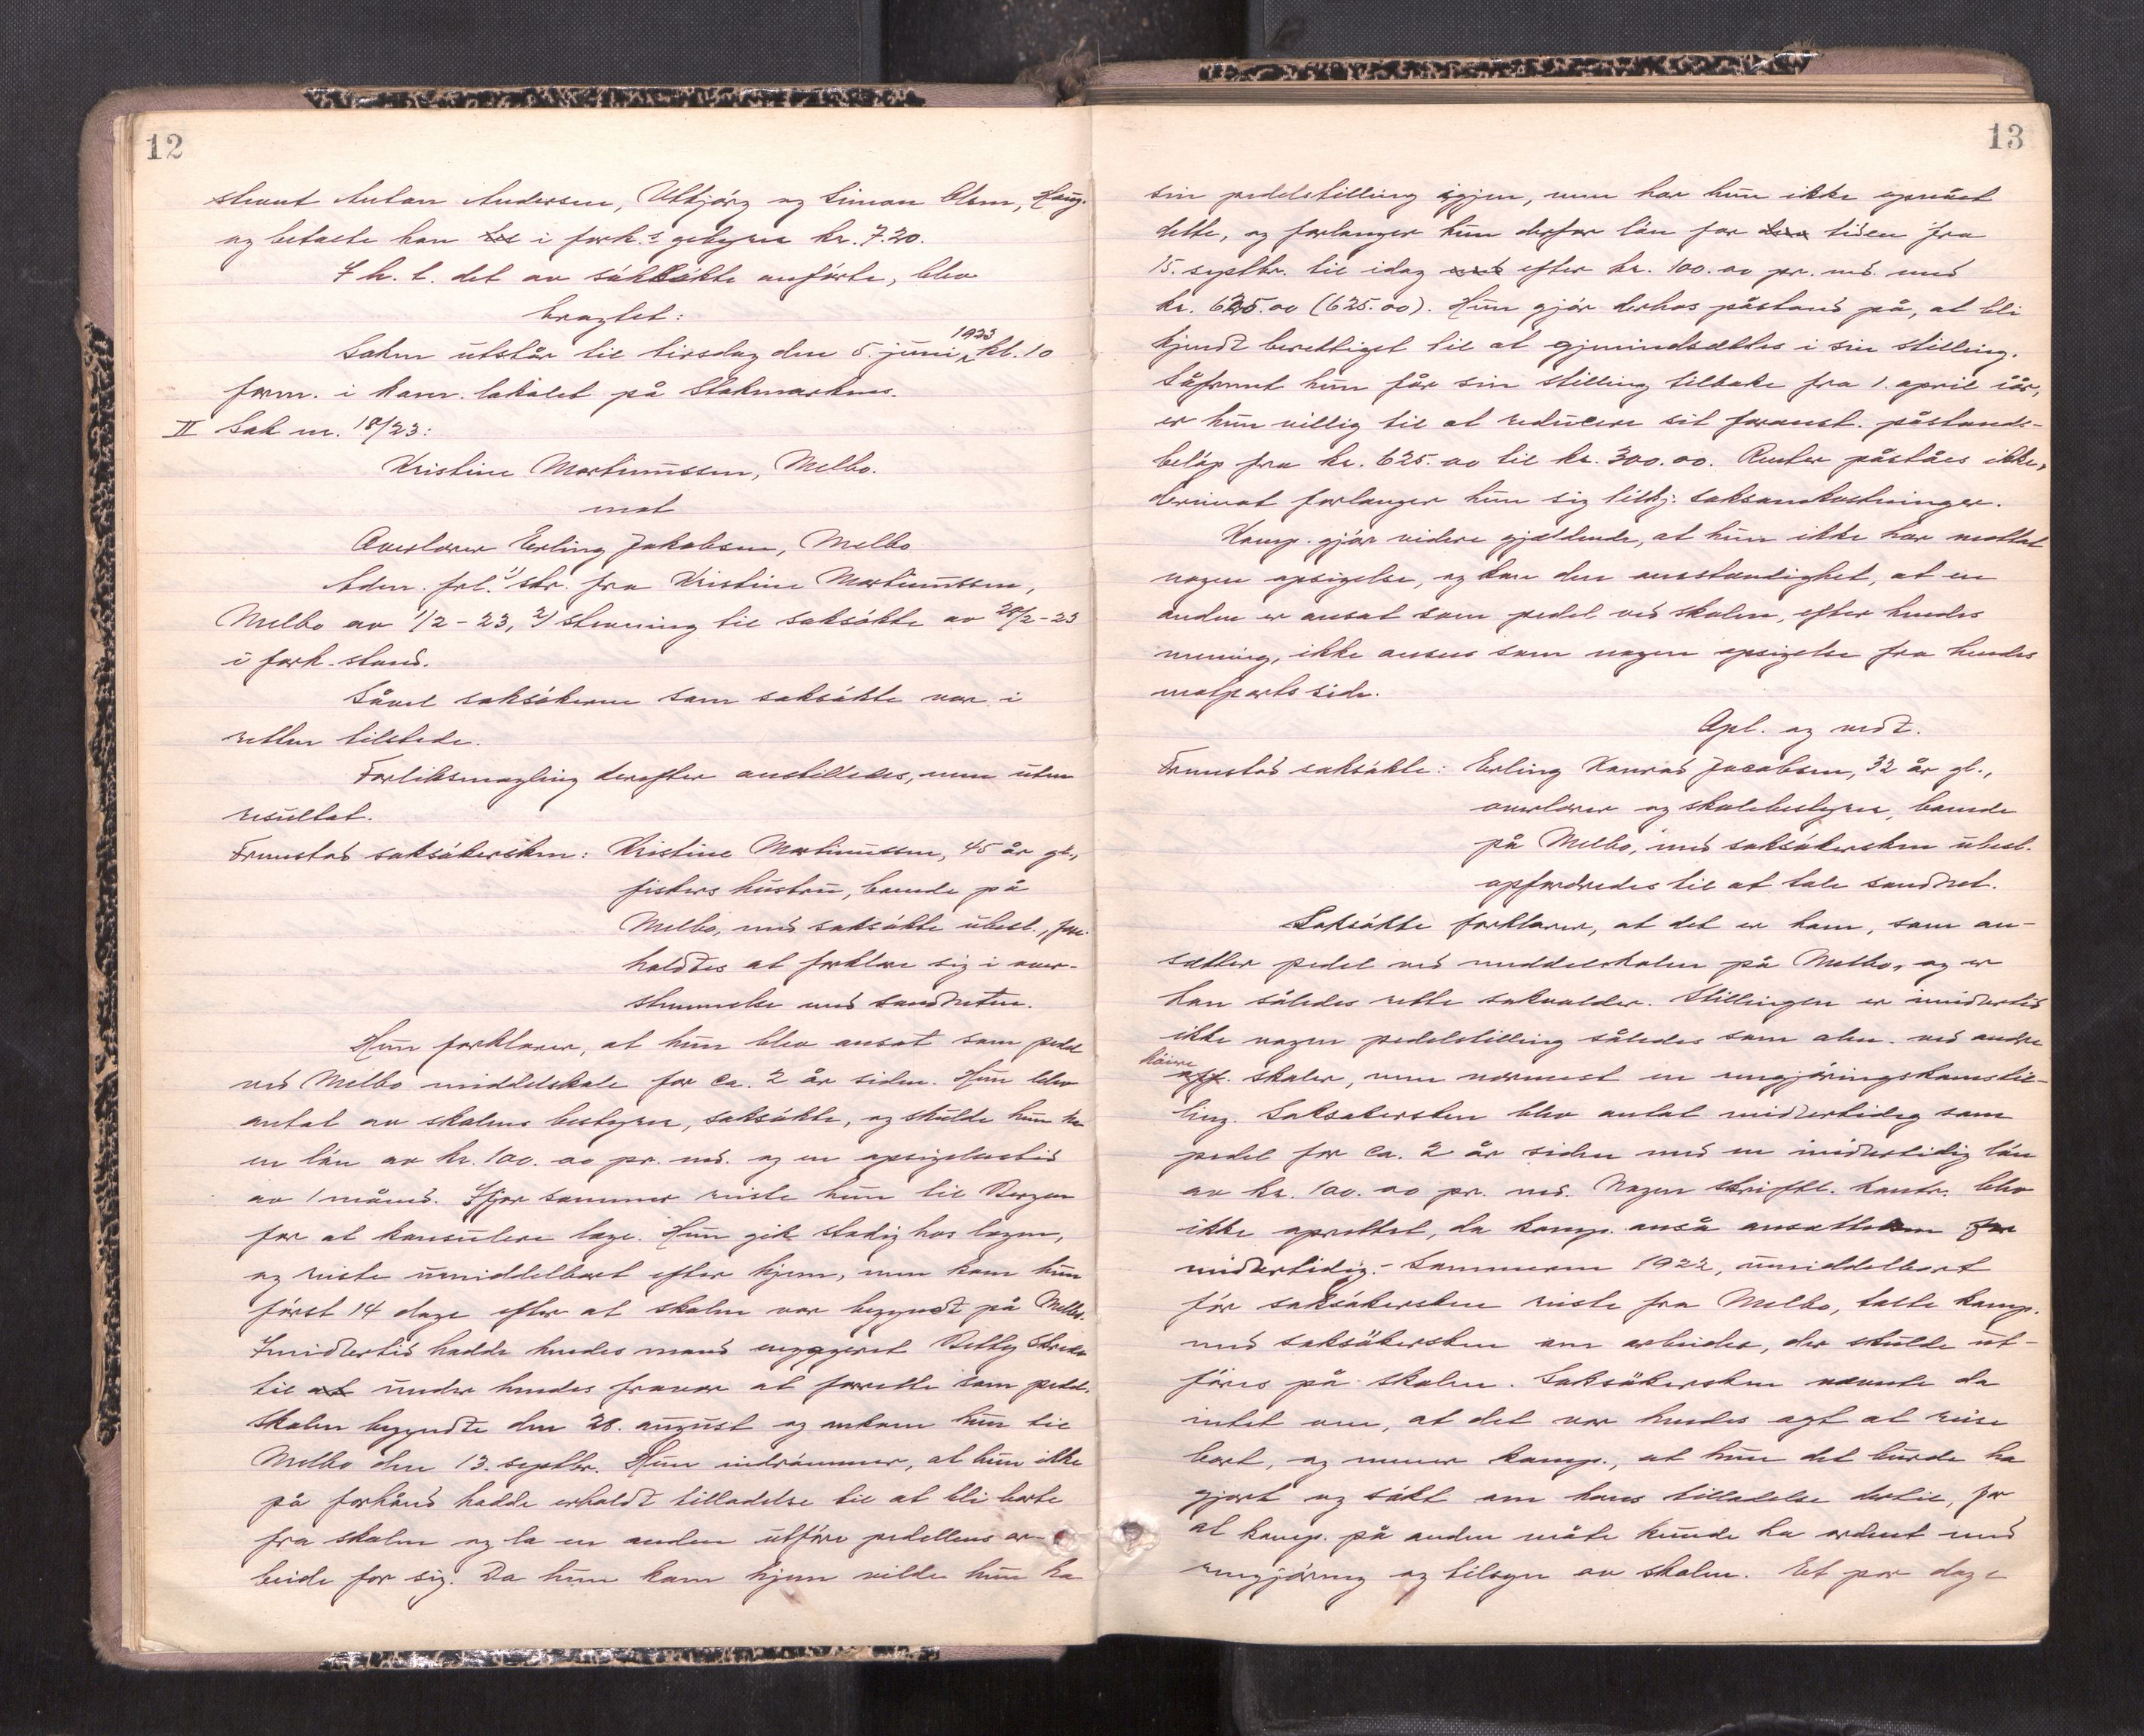 12
stevnt Anton Andersen, Utbjörg og Simon Olsen, Haug.
og betalte han til i fork.s gebyrer kr. 7.20.
I h. t. det av saksökte anförte, blev
bragtet:
Saken utstår til tirsdag den 5. juni 1923 kl. 10
form. i kom. lokalet på Stokmarknes.
II Sak nr. 18/23:
Kristine Martinussen, Melbo.
mot
Overlærer Erling Jakobsen, Melbo
Adm. frl. 1) skr. fra Kristine Martinussen,
Melbo av 1/2-23, 2) stevning til saksökte av 28/2-23
i fork. stand.
Såvel saksökeren som saksökte var i
retten tilstede.
Forliksmægling derefter anstilledes, men uten
resultat.
Fremstod saksökersken: Kristine Martinussen, 45 år gl.,
fiskers hustru, boende på
Melbo, med saksökte ubesl., fore-
holdtes at forklare sig i over-
stemmelse med sandheten.
Hun forklarer, at hun blev ansat som pedel
ved Melbo middelskole for ca. 2 år siden. Hun blev
antat av skolens bestyrer, saksökte, og skulde hun ha
en lön av kr. 100.00 pr. md. og en opsigelsestid
av 1 måned. Ifjor sommer reiste hun til Bergen
for at konsulere læge. Hun gik stadig hos lægen,
og reiste umiddelbart efter hjem, men kom hun
först 14 dage efter at skolen var begyndt på Melbo.
Imidlertid hadde hendes mand engageret Betty
til at under hendes fravær at forrette som pedel.
Skolen begyndte den 28. august og ankom hun til
Melbo den 13. septbr. Hun indrömmer, at hun ikke
på forhånd hadde erholdt tilladelse til at bli borte
fra skolen og la en anden utföre pedellens ar-
beide for sig. Da hun kom hjem vilde hun ha
13
sin pedelstilling igjen, men har hun ikke opnået
dette, og forlanger hun derfor lön for den tiden fra
15. septbr. til idag med efter kr. 100.00 pr. md. med
kr. 625.00 (625.00). Hun gjör derhos påstand på, at bli
kjendt berettiget til at gjenindsættes i sin stilling.
Såfremt hun får sin stilling tilbake fra 1. april iår,
er hun villig til at reducere sit foranst. påstands-
belöp fra kr. 625.00 til kr. 300.00. Renter påståes ikke,
derimot forlanger hun sig tilkj. saksomkostninger.
Komp. gjör videre gjældende, at hun ikke har mottat
nogen opsigelse, og kan den omstændighet, at en
anden er ansat som pedel ved skolen, efter hendes
mening, ikke ansees som nogen opsigelse fra hendes
motparts side.
Opl. og vedt.
Fremstod saksökte: Erling Konrad Jacobsen, 32 år gl.,
overlærer og skolebestyrer, boende
på Melbo, med saksökersken ubesl.
opfordredes til at tale sandhet.
Saksökte forklarer, at det er ham, som an-
sætter pedel ved middelskolen på Melbo, og er
han således rette sakvolder. Stillingen er imidlertid
ikke nogen pedelstilling således som alm. ved andre
höiere off. skoler, men nærmest en rengjöringskonestil-
ling. Saksökersken blev antat midlertidig som
pedel for ca. 2 år siden med en midlertidig lön
av kr. 100.00 pr. md. Nogen skriftl. kontr. blev
ikke oprettet, da komp. anså ansættelsen for
midlertidig. – Sommeren 1922, umiddelbart
för saksökersken reiste fra Melbo, talte komp.
med saksökersken om arbeider, der skulde ut-
föres på skolen. Saksökersken nævnte da
intet om, at det var hendes agt at reise
bort, og mener komp., at hun det burde ha
gjort og sökt om hans tilladelse dertil, for
at komp. på anden måte kunde ha ordnet med
rengjöring og tilsyn av skolen. Et par dage